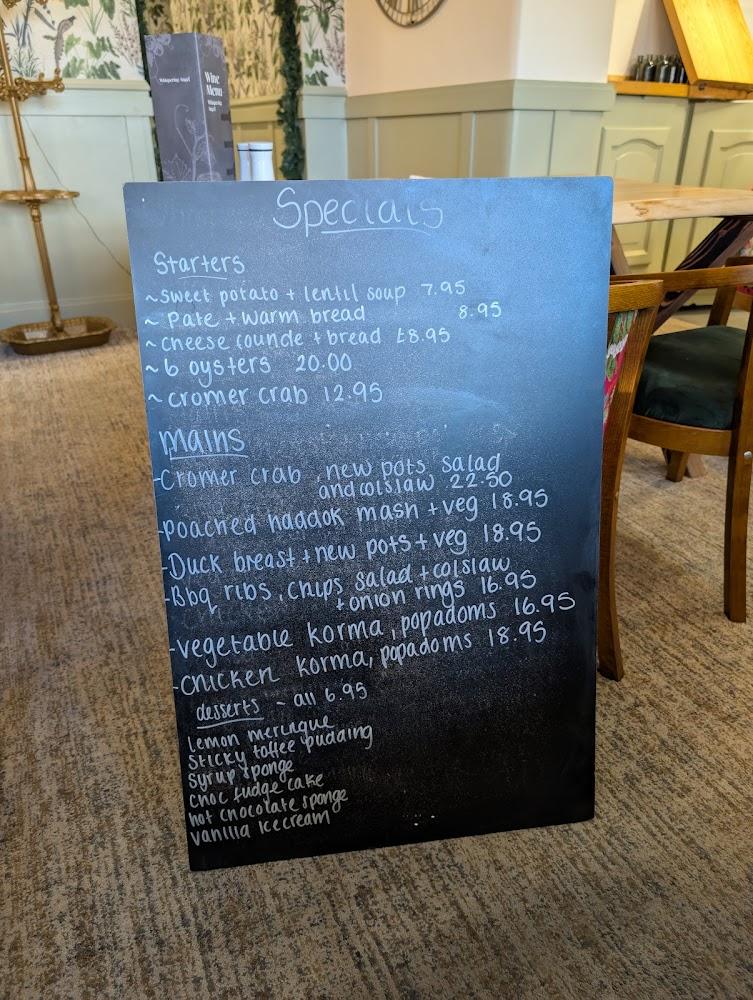 Whispering Angel
Wine
Menu
Whispering
Angel
Specials
Starters
~ sweet potato + lentil soup 7.95
~ Pate + warm bread 8.95
~ cheese rounde + bread £8.95
~ 6 oysters 20.00
~ cromer crab 12.95
Mains
- Cromer crab, new pots, salad
and colslaw 22.50
- poached haddok mash + veg 18.95
- Duck breast + new pots + veg 18.95
- Bbq ribs, chips salad + colslaw
+ onion rings 16.95
- vegetable korma, popadoms 16.95
- chicken korma, popadoms 18.95
desserts ~ all 6.95
lemon meringue
sticky toffee pudding
syrup sponge
choc fudge cake
hot chocolate sponge
vanilla icecream